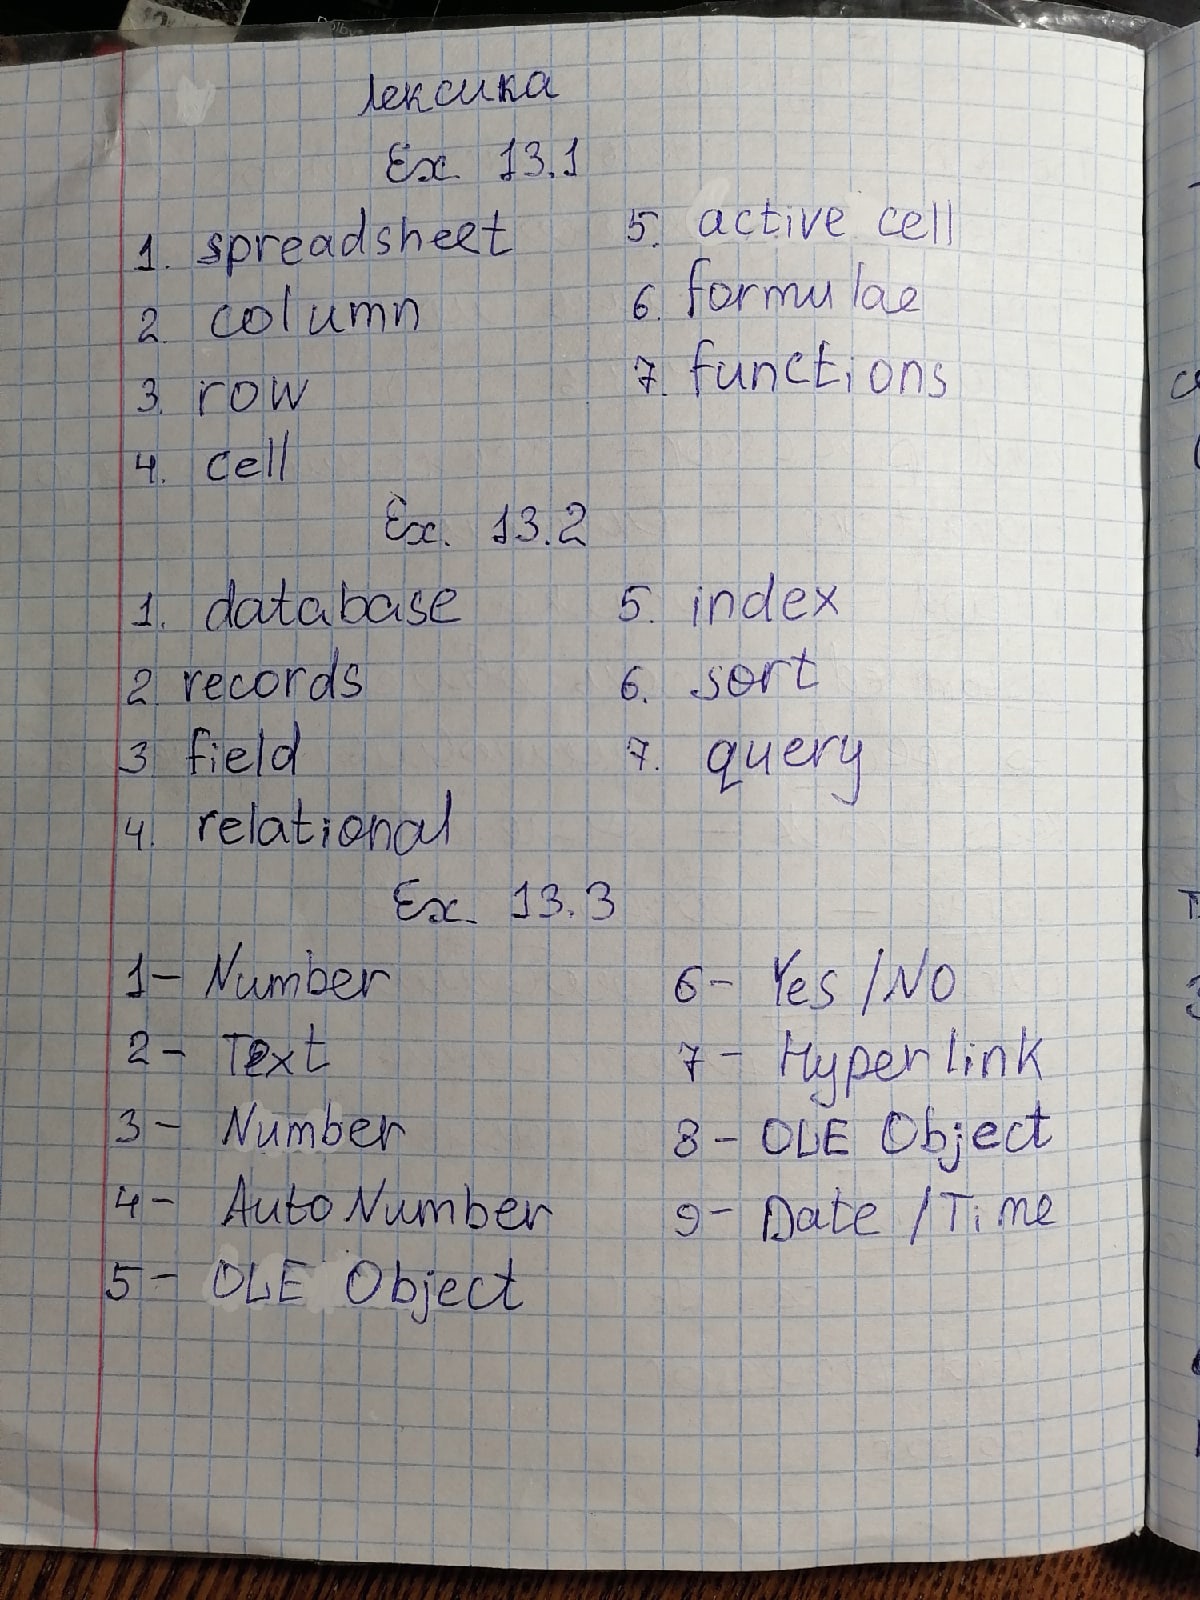 лексика
Ex. 13.1
1. spreadsheet
2. column
3. row
4. cell
5. active cell
6. formulae
7. functions
Ex. 13.2
1. database
2 records
3 field
4. relational
5. index
6. sort
7. query
Ex. 13.3
1- Number
2- Text
3- Number
4- Auto Number
5- OLE Object
6- Yes /NO
7- Hyperlink
8- OLE Object
9- Date /Time